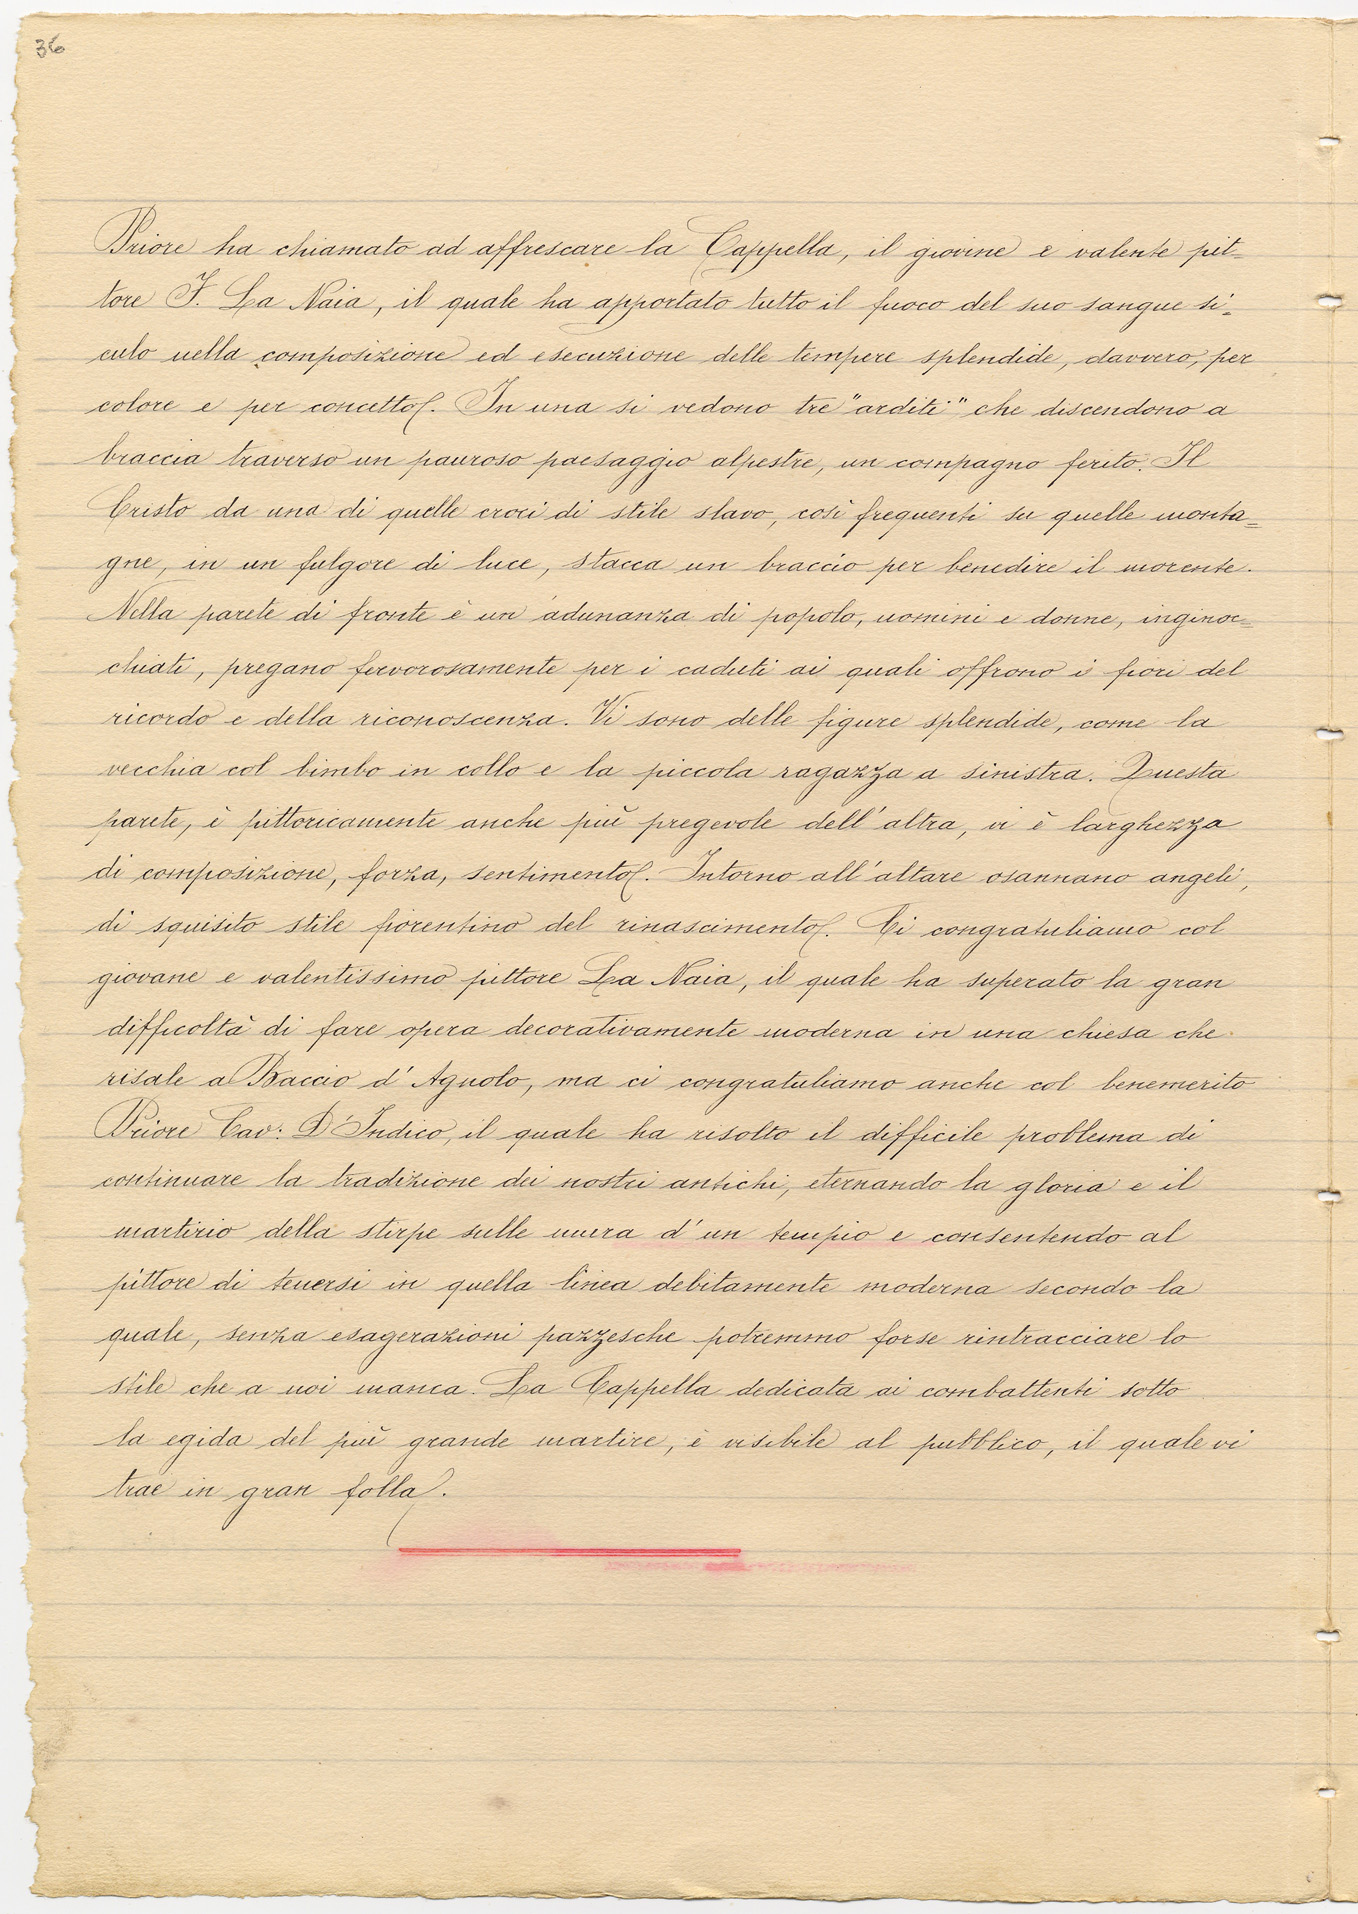 36
Priore ha chiamato ad affrescare la Cappella, il giovine e valente pit=
tore F. La Naia, il quale ha apportato tutto il fuoco del suo sangue si=
culo nella composizione ed esecuzione delle tempere splendide, davvero, per
colore e per concetto. In una si vedono tre "arditi" che discendono a
braccia traverso un pauroso paesaggio alpestre, un compagno ferito. Il
Cristo da una di quelle croci di stile slavo, così frequenti su quelle monta=
gne, in un fulgore di luce, stacca un braccio per benedire il morente.
Nella parete di fronte è un'adunanza di popolo, uomini e donne, inginoc=
chiati, pregano fervorosamente per i caduti ai quali offrono i fiori del
ricordo e della riconoscenza. Vi sono delle figure splendide, come la
vecchia col bimbo in collo e la piccola ragazza a sinistra. Questa
parete, è pittoricamente anche più pregevole dell'altra, vi è larghezza
di composizione, forza, sentimento. Intorno all'altare osannano angeli,
di squisito stile fiorentino del rinascimento. Ci congratuliamo col
giovane e valentissimo pittore La Naia, il quale ha superato la gran
difficoltà di fare opera decorativamente moderna in una chiesa che
risale a Baccio d'Agnolo, ma ci congratuliamo anche col benemerito
Priore Cav: D'Indico, il quale ha risolto il difficile problema di
continuare la tradizione dei nostri antichi, eternando la gloria e il
martirio della stirpe sulle mura d'un tempio e consentendo al
pittore di tenersi in quella linea debitamente moderna secondo la
quale, senza esagerazioni pazzesche potremmo forse rintracciare lo
stile che a noi manca. La Cappella dedicata ai combattenti sotto
la egida del più grande martire, è visibile al pubblico, il quale vi
trae in gran folla.